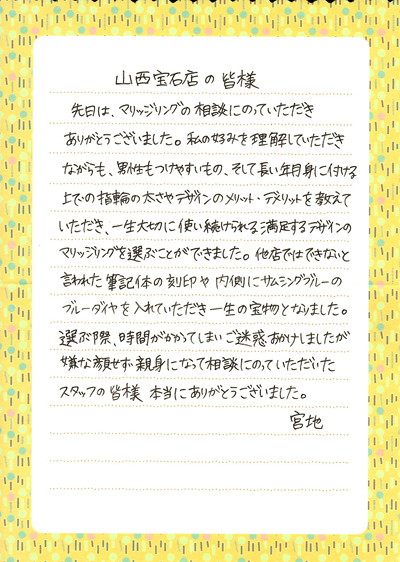 山西宝石店の皆様
先日は、マリッジリングの相談にのっていただき
ありがとうございました。私の好みを理解していただき
ながらも、男性もつけやすいもの、そして長い年月身に付ける
上での指輪の太さやデザインのメリット・デメリットを教えて
いただき、一生大切に使い続けられる満足するデザインの
マリッジリングを選ぶことができました。他店ではできないと
言われた筆記体の刻印や内側にサムシングブルーの
ブルーダイヤを入れていただき一生の宝物となりました。
選ぶ際、時間がかかてしまいご迷惑おかけしましたが
嫌な顔せず親身になって相談にのっていただいた
スタッフの皆様 本当にありがとうございました。
宮地